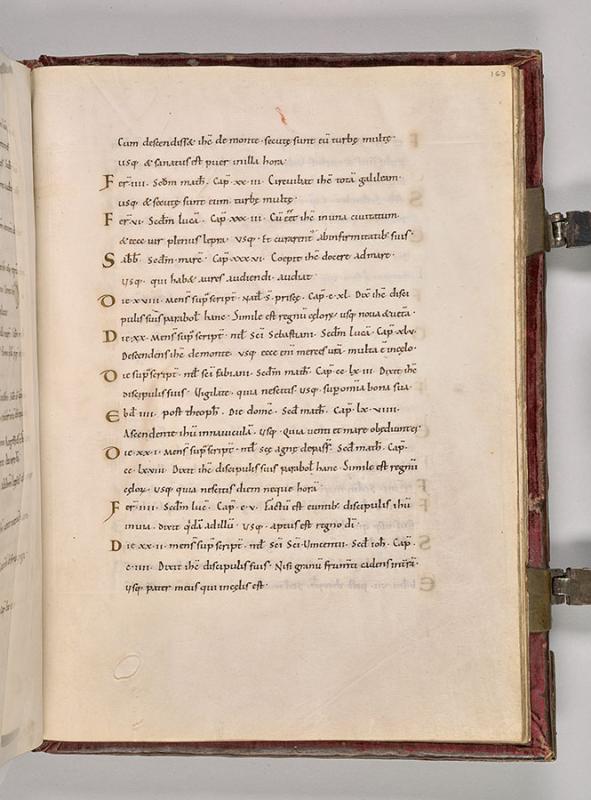 163
Cum descendiss& ihc̄ de monte · secutę sunt eū turbę multę ·
usq · & sanatus est puer in illa hora ·
Fer̄ · iiii · Scdm̄ math̄ · Cap̄ · xx · iii · Circuibat ihc̄ totā galileam ·
usq · & secutę sunt eum turbę multę ·
Fer̄ · vi · Scdm̄ lucā · Cap̄ · xxx · iii · Cū ēēt ihc̄ in una ciuitatum ·
& ecce uir plenus lepra · usq · Et curarent' ab infirmitatib; suis ·
Sabb̄ · Scdm̄ marc̄ · Cap̄ · xxxvi · Coepit ihc̄ docere ad mare ·
usq · qui hab& aures audiendi · audiat ·
Die · xviii · Mens̄ sup̄script̄ · Nat̄l · S · priscę · Cap̄ · c · xl · Dix̄ ihc̄ disci
pulis suis parabol̄ hanc · Simile est regnū cęlorȝ · usq noua & u&ā ·
Die · xx · Mens̄ sup̄script̄ · nt̄l · sc̄i Sebastiani · Scdm̄ lucā · Cap̄ · xlv ·
Descendens ihc̄ de monte · usq ecce eni merces urā · multa ē in cęlo ·
Die sup̄script̄ · nt̄l · sc̄i fabiani · Scdm̄ math̄ · Cap̄ · cc · lx · iii · Dixit ihc̄
discipulis suis · Vigilate · quia nescitis usq · sup omnia bona sua ·
Ebd̄ · iiii · post theoph̄ · Die domē · Scd̄ math̄ · Cap̄ · lx · viiii ·
Ascendente ihū in nauiculā · usq · Quia uenti et mare obędiunt ei ·
Die · xx · i · Mens̄ sup̄script̄ · nt̄l · scę agnę de pass̄ · Scd̄ math̄ · Cap̄ ·
cc · lxxiii · Dixit ihc̄ discipulis suis parabol̄ hanc · Simile est regnū
cęlorȝ · usq quia nescitis diem neque horā ·
Fer̄ · iiii · Scdm̄ luc̄ · Cap̄ · c · v · Factū est euntib; discipulis ihū
in uia · Dixit qd̄ā ad illū · usq · aptus est regno dī ·
Die · xx · ii · mens̄ sup̄script̄ · nt̄l · Sc̄i Vincentii · Scd̄ ioh̄ · Cap̄ ·
c · iiii · Dixit ihc̄ discipulis suis · Nisi granū frumti cadens in trā ·
usq · pater meus qui in cęlis est ·